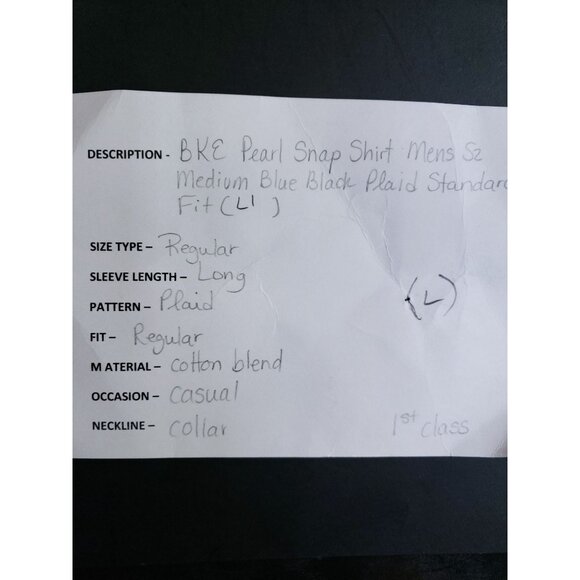 DESCRIPTION - BKE Pearl Snap Shirt Mens Sz
Medium Blue Black Plaid Standard
Fit (L1 )
SIZE TYPE – Regular
SLEEVE LENGTH – Long
PATTERN – Plaid
(L)
FIT – Regular
M ATERIAL – cotton blend
OCCASION – casual
NECKLINE – collar
1st class